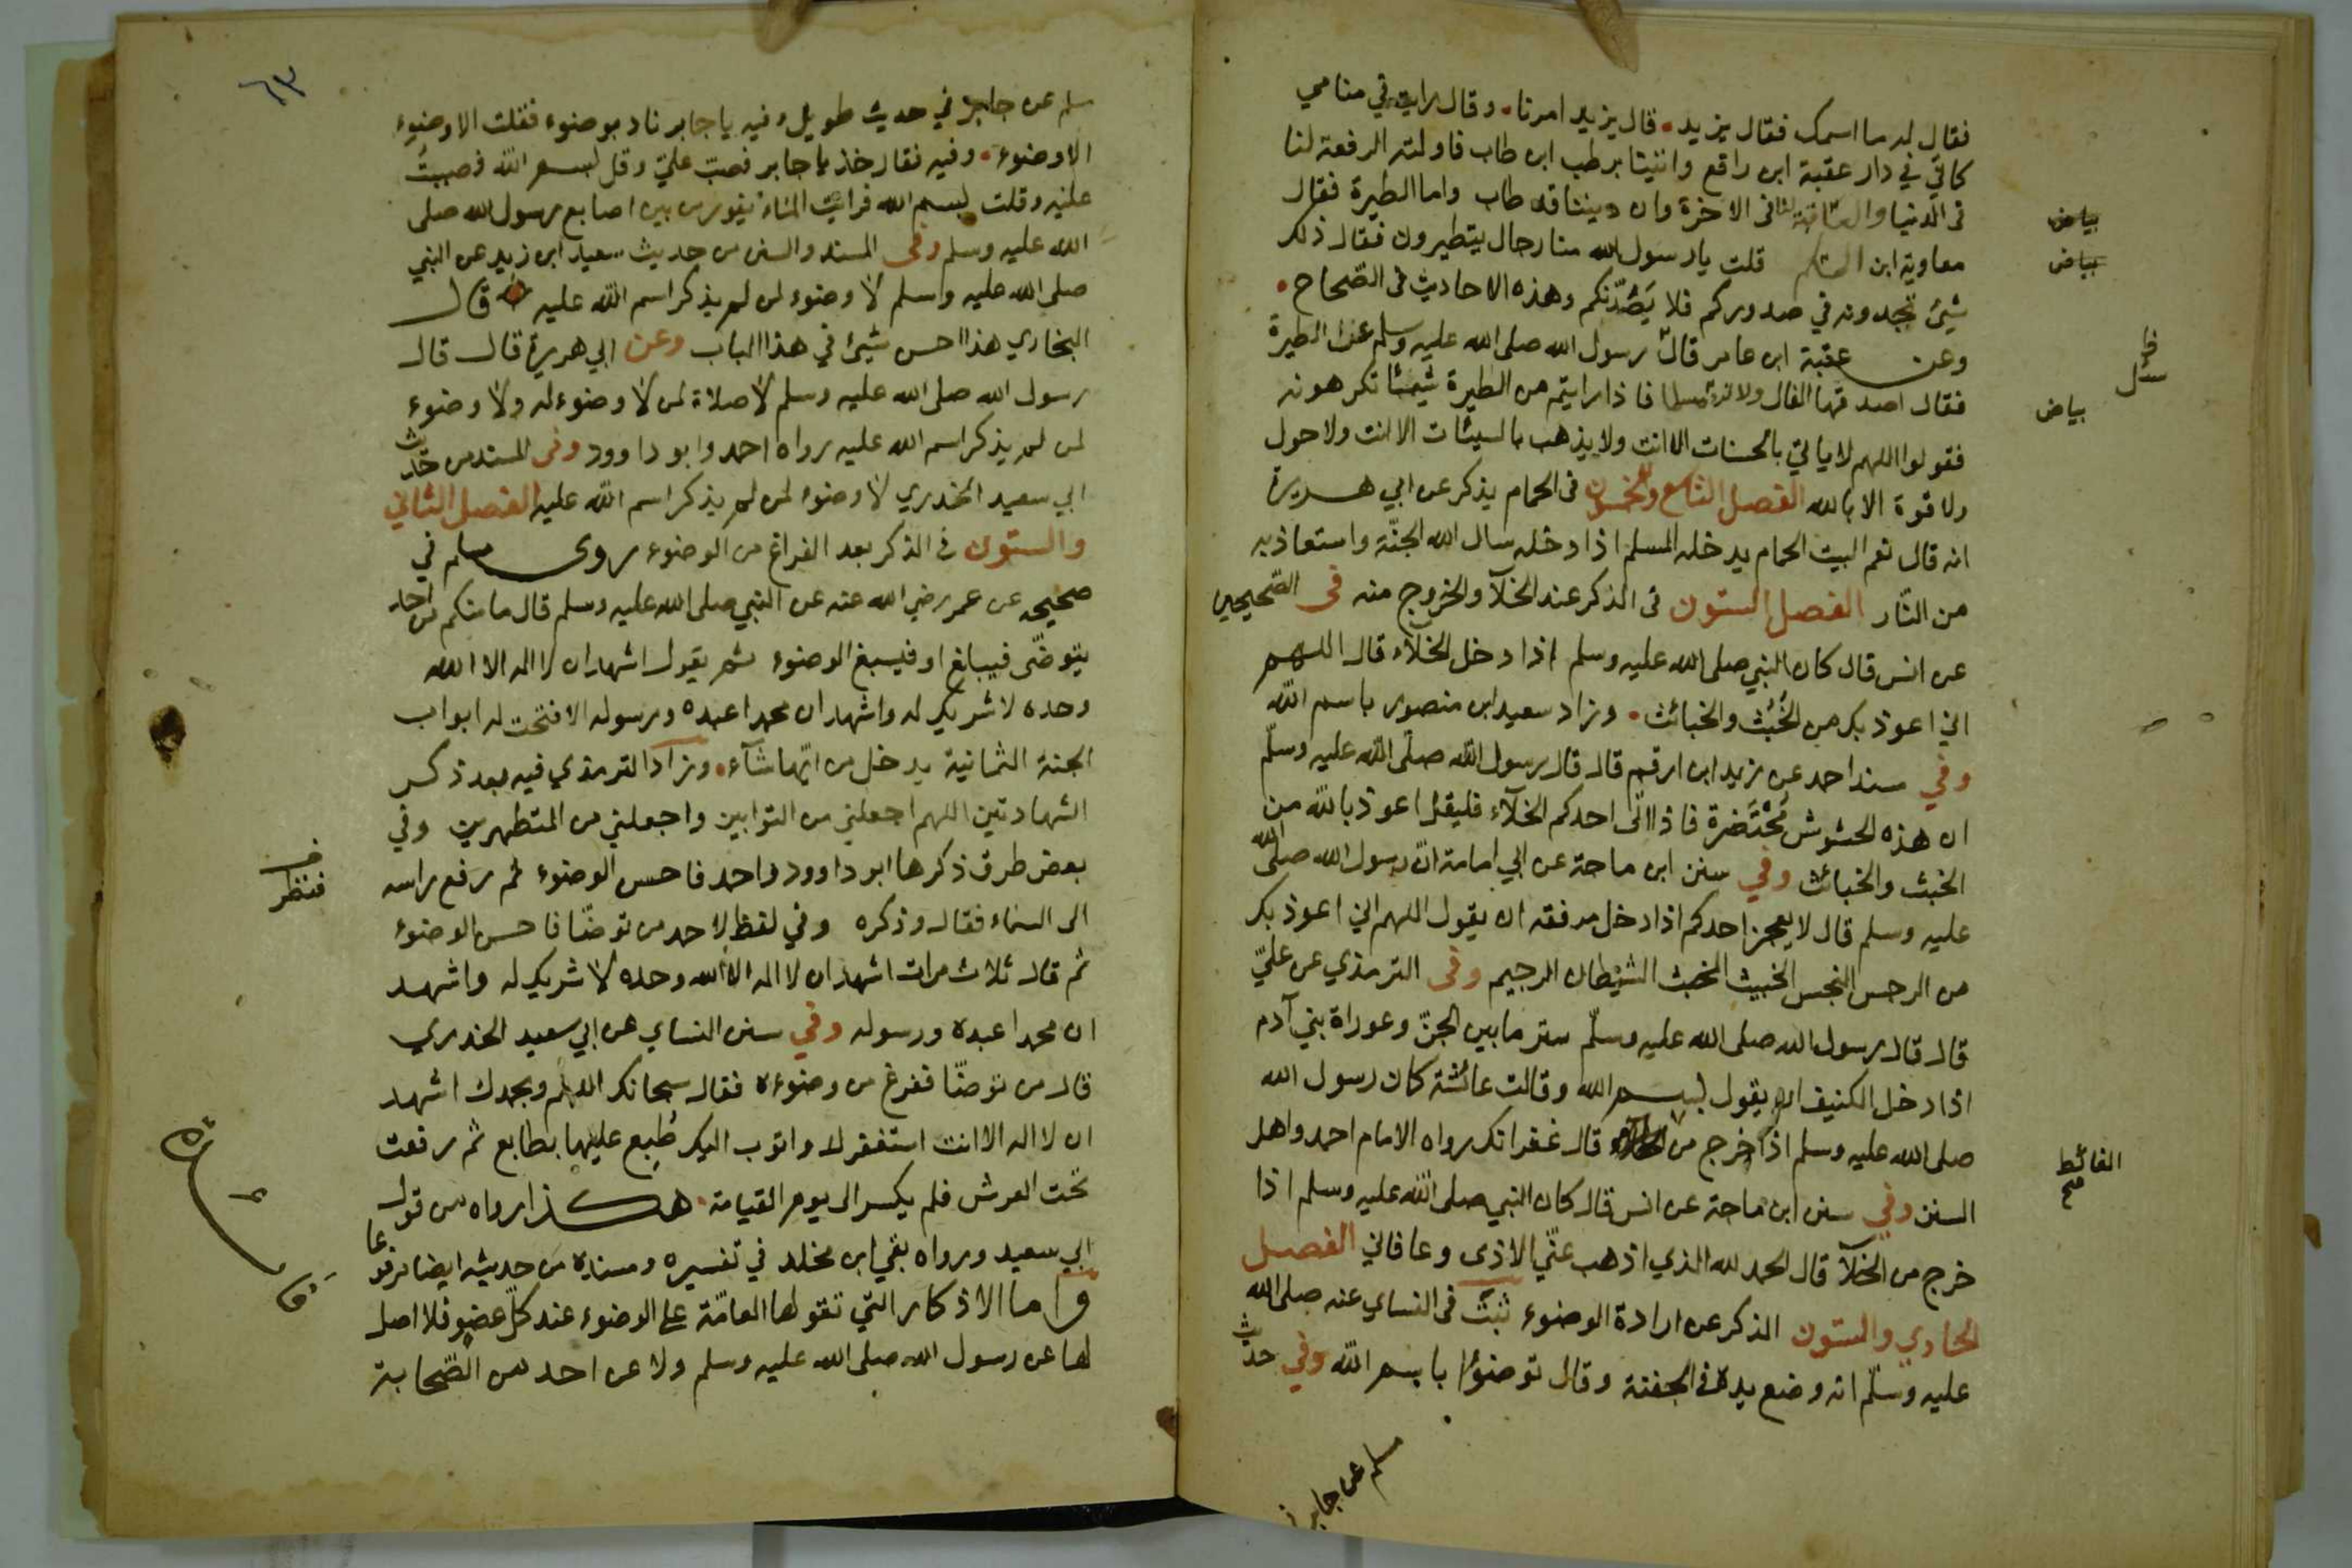 فقال له ما اسمك فقال يزيد . قال يزيد امرنا . وقال رايت في منامي
كاني في دار عقبة ابن رافع واتينا برطب ابن طاب فاولته الرفعة لنا
في الدنيا والعاقبة لنا في الاخرة وان ديننا قد طاب واما الطيرة فقال
معاوية ابن قلت يا رسول الله منا رجال يتطيرون فقال ذلك
شيئ تجدونه في صدوركم فلا يَصُدّنكم وهذه الاحاديث في الصّحاح .
وعن عقبة ابن عامر قال رسول الله صلى الله عليه وسلم عن الطيرة
فقال اصدقها الفال ولا ترد مسلما فاذا رايتم من الطيرة شيئا تكرهونه
فقولوا اللهم لا ياتي بالحسنات الا انت ولا يذهب بالسيئات الا انت ولا حول
ولا قوة الا بالله الفصل التاسع والخمسون في الحمام يذكر عن ابي هريرة
انه قال نعم البيت الحمام يدخله المسلم اذا دخله سال الله الجنّة واستعاذ به
من النّار الفصل الستون في الذكر عند الخلآ والخروج منه في الصّحيحين
عن انس قال كان النبي صلى الله عليه وسلم اذا دخل الخلاء قال اللهم
اني اعوذ بك من الخُبُث والخبائث . وزاد سعيد ابن منصور باسم الله
وفي سند احمد عن زيد ابن ارقم قال قال رسول الله صلّى الله عليه وسلّم
ان هذه الحشوش مُحْتَضَرة فاذا اتى احدكم الخلآء فليقل اعوذ بالله من
الخبث والخبائث وفي سنن ابن ماجة عن ابي امامة انّ رسول الله صلى الله
عليه وسلم قال لا يعجز احدكم اذا دخل مرفقه ان يقول اللهم اني اعوذ بك
من الرجس النجس الخبيث المخبث الشيطان الرجيم وفي الترمذي عن عليّ
قال قال رسول الله صلى الله عليه وسلّم ستر ما بين الجنّ وعوراة بني آدم
اذا دخل الكنيف ان يقول بسم الله وقالت عائشة كان رسول الله
صلى الله عليه وسلم اذا خرج من قال غفرانك رواه الامام احمد واهل
السنن وفي سنن ابن ماجة عن انس قال كان النبي صلى الله عليه وسلم اذا
خرج من الخلآ قال الحمد لله الذي اذهب عنّي الاذى وعافاني الفصل
الحادي والستون الذكر عن ارادة الوضوء ثبت في النساي عنه صلى الله
عليه وسلّم انه وضع يده في الجفنة وقال توضؤا باسم الله وفي حديث
مسلم عن جابر
بياض
بياض
سئل
بياض
الغائط
صح
٦٣
سلم عن جابر في حديث طويل وفيه يا جابر ناد بوضوء فقلت الا وضوء
الا وضوء . وفيه فقال خذ يا جابر فصبّ عليّ وقل بسم الله فصببت
عليه وقلت بسم الله فرايت الماء يفور من بين اصابع رسول الله صلى
الله عليه وسلم وفي المسند والسنن من حديث سعيد ابن زيد عن النبي
صلى الله عليه وسلم لا وضوء لمن لم يذكر اسم الله عليه قال
البخاري هذا احسن شيئ في هذا الباب وعن ابي هريرة قال قال
رسول الله صلى الله عليه وسلم لا صلاة لمن لا وضوء له ولا وضوء
لمن لم يذكر اسم الله عليه رواه احمد وابو داوود وفي المسند من حديث
ابي سعيد الخدري لا وضوء لمن لم يذكر اسم الله عليه الفصل الثاني
والستون في الذكر بعد الفراغ من الوضوء روى مسلم في
صحيحه عن عمر رضي الله عنه عن النبي صلى الله عليه وسلم قال ما منكم من احد
يتوضّى فيبلغ او فيسبغ الوضوء ثم يقول اشهد ان لا اله الا الله
وحده لا شريك له واشهد ان محمدا عبده ورسوله الا فتحت له ابواب
الجنة الثمانية يدخل من ايّها شآء . وزاد الترمذي فيه بعد ذكر
الشهادتين اللهم اجعلني من التوابين واجعلني من المتطهرين وفي
بعض طرق ذكرها ابو داوود واحمد فاحسن الوضوء ثم رفع راسه
الى السماء فقال وذكره وفي لفظ لاحمد من توضّا فاحسن الوضوء
ثم قال ثلاث مرات اشهد ان لا اله الا الله وحده لا شريك له واشهد
ان محمدا عبده ورسوله وفي سنن النساي عن ابي سعيد الخدري
قال من توضّا ففرغ من وضوءه فقال سبحانك اللهم وبحمدك اشهد
ان لا اله الا انت استغفرك واتوب اليك طُبع عليها بطابع ثم رفعت
تحت العرش فلم يكسر الى يوم القيامة . هكذا رواه من قول
ابي سعيد ورواه بقي ابن مخلد في تفسيره ومسنده من حديثه ايضا مرفوعا
واما الاذكار التي تقولها العامّة على الوضوء عند كلّ عضو فلا اصل
لها عن رسول الله صلى الله عليه وسلم ولا عن احد من الصّحابة
فنظر